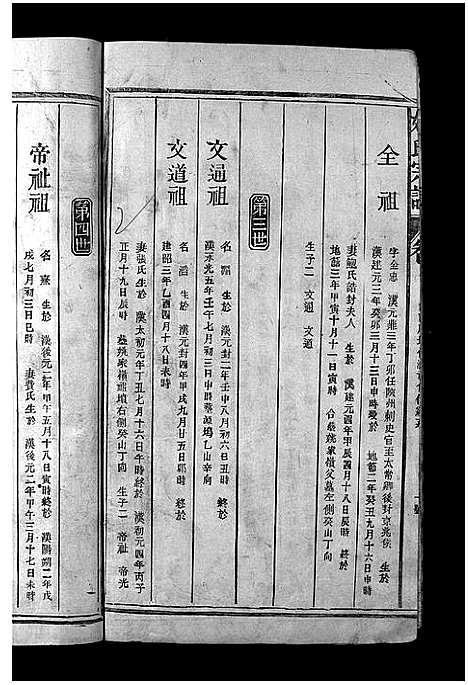 全祖
字坐忠 漢元鼎三年丁卯任陝州刺史官至太常卿後封京兆侯 生於
漢建元三年癸卯三月十三日申時歿於 地節二年癸丑九月十六日申時
妻魏氏誥封夫人 生於 漢建元四年甲辰四月十八日辰時 終於
地節三年甲寅十月十一日寅時 合葬姚家嶺父墓左側癸山丁向
生子二 文通 文道
第三世
文通祖
名 滔 生於 漢元封二年壬申八月初六日丑時 終於
漢永光五年壬午七月初三日申時葬源塢乙山辛向
文道祖
名 滔 生於 漢元封四年甲戌九月廿五日卯時 終於
建昭三年乙酉四月十八日未時
妻張氏生於 漢太初元年丁丑七月十六日午時終於 漢初元四年丙子
正月十九日辰時 葬姚家嶺祖墳右側癸山丁向 生子二 帝祉 帝光
第四世
帝祉祖
名 熹 生於 漢後元二年甲午五月十八日寅時終於 漢陽朔二年戊
戌七月初三日巳時
妻費氏生於 漢後元二年甲午三月十七日未時